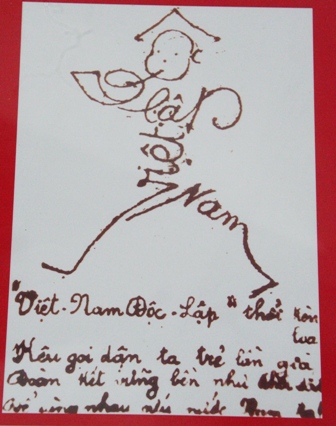 Độc
lập
Việt
Nam
"Việt-Nam Độc-Lập" thổi kèn
loa
Kêu gọi dân ta trẻ lẫn già
Đoàn kết vững bền như
Để cùng nhau cứu nước Nam ta